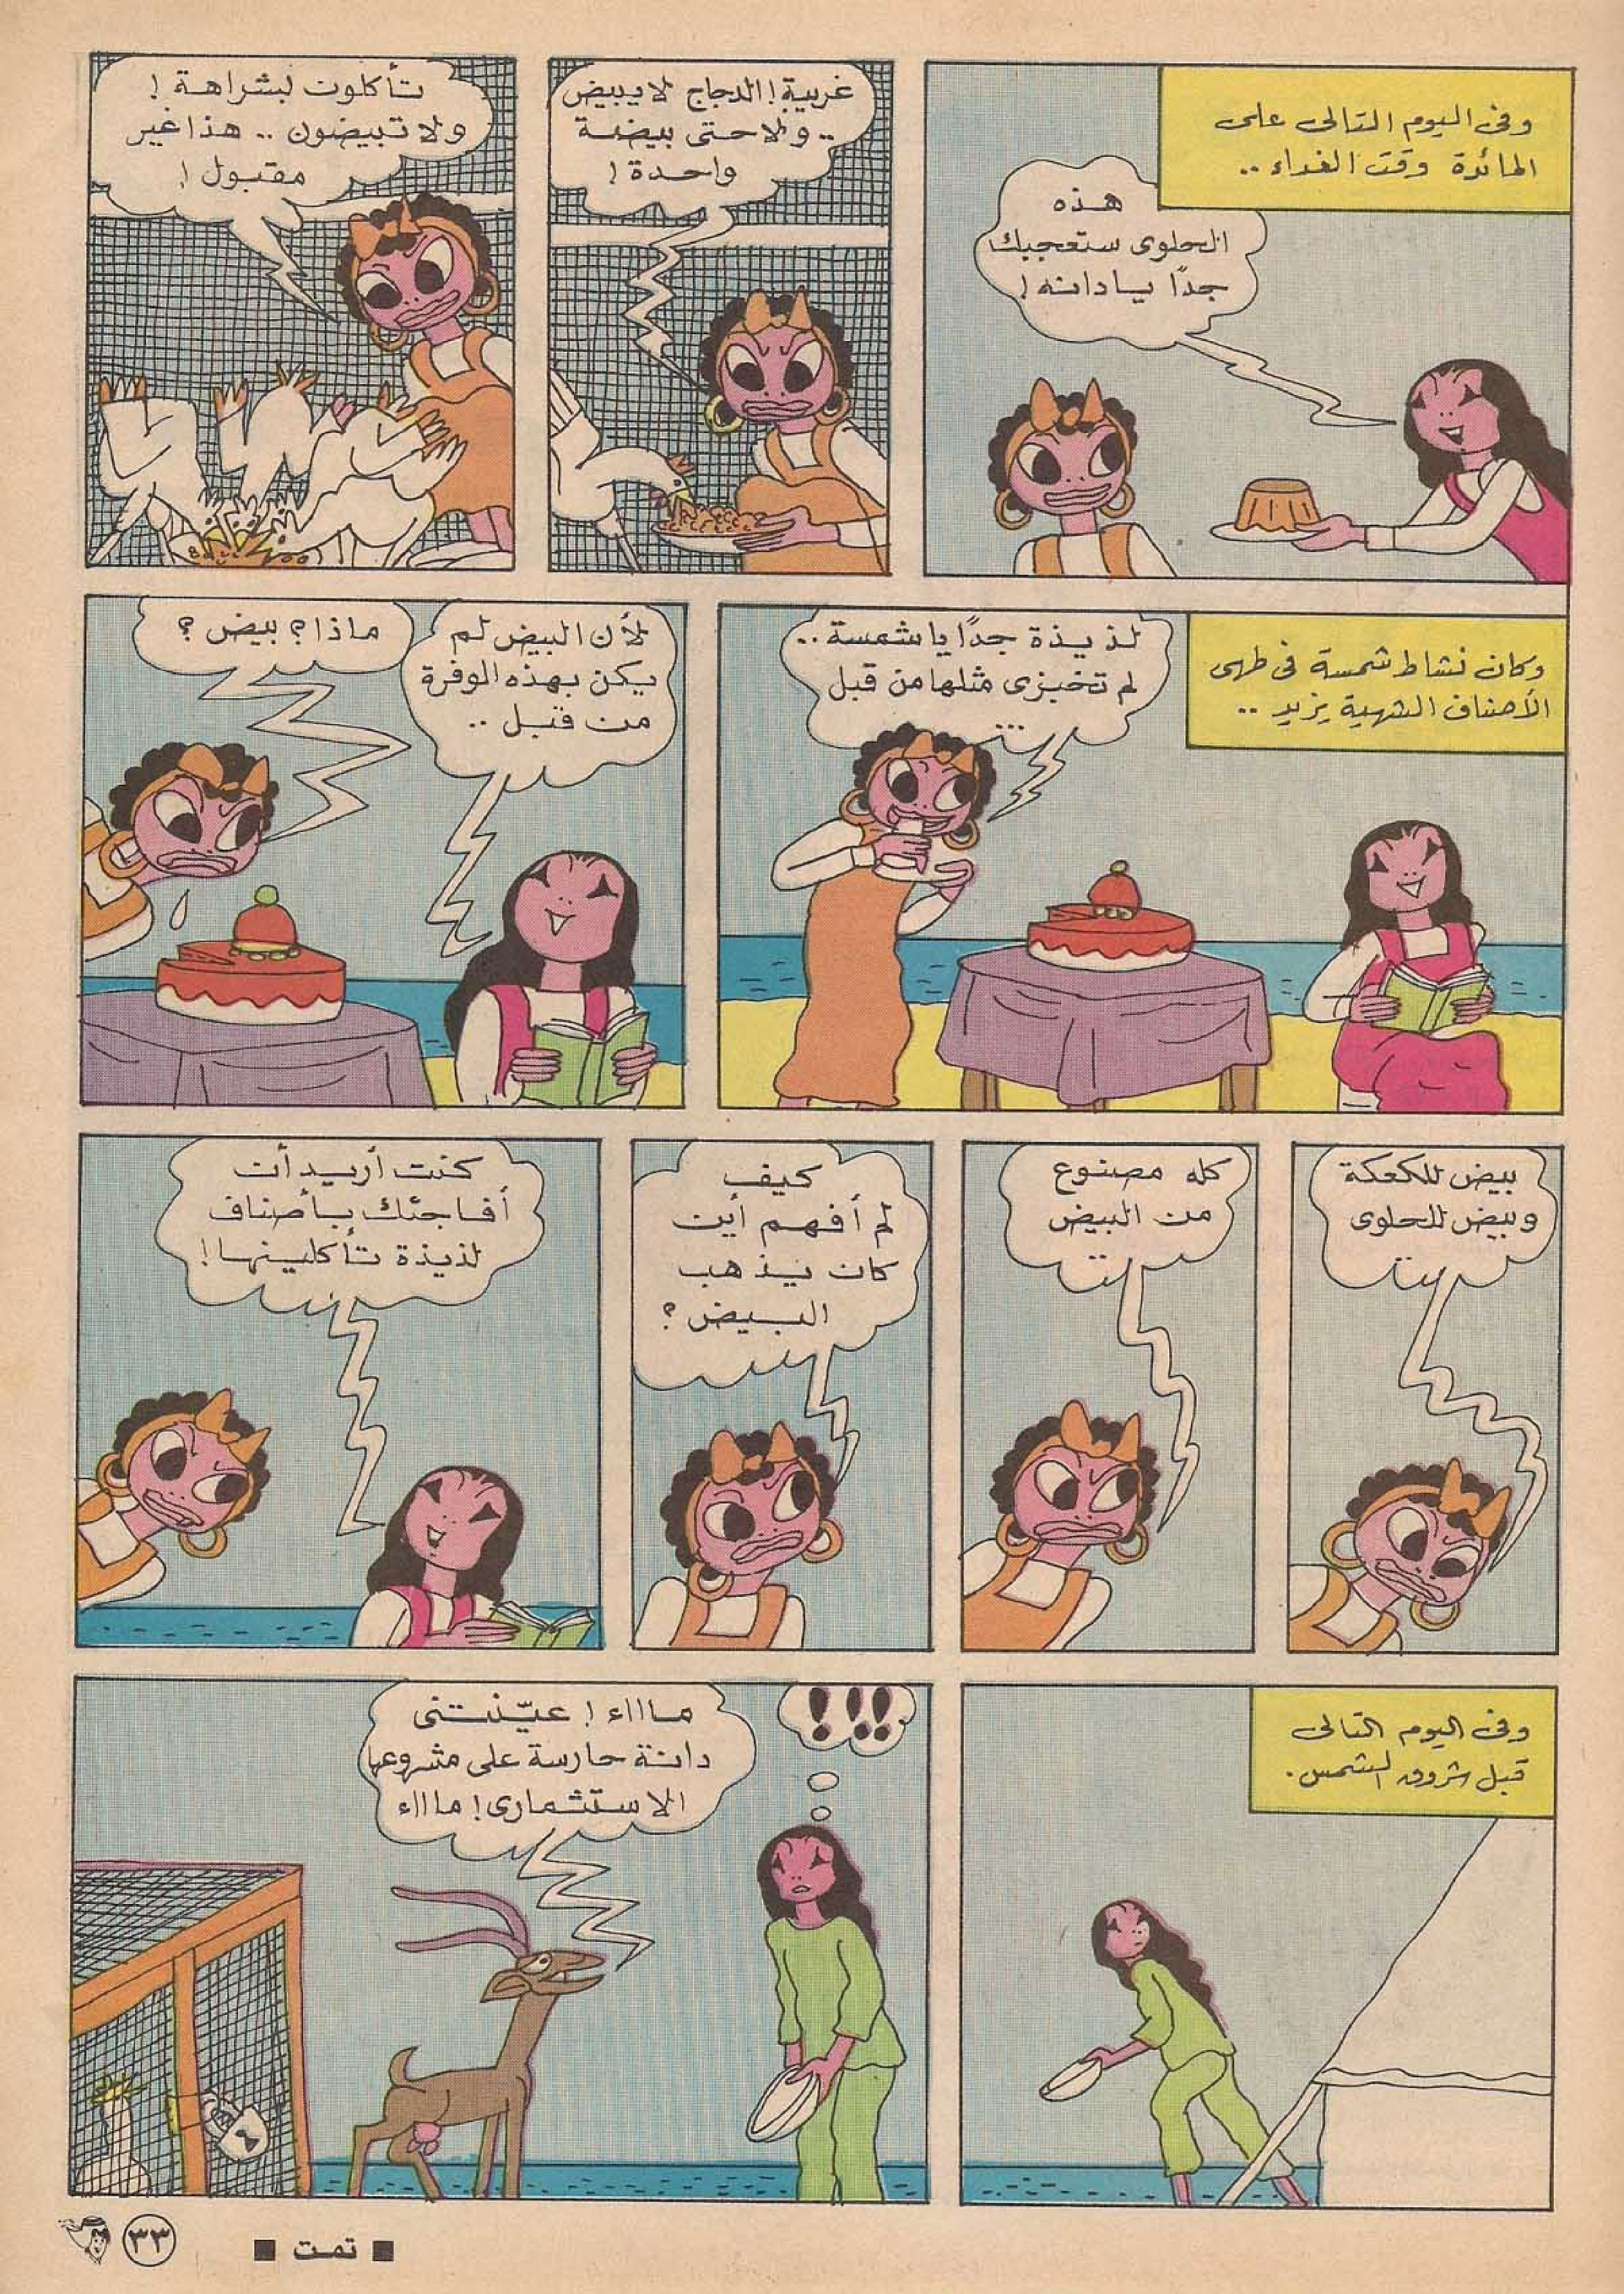 وفى اليوم التالى على
المائدة وقت الغداء ..
هذه
الحلوى ستعجبك
جدًا يا دانه !
غريبة ! الدجاج لا يبيض
.. ولا حتى بيضة
واحدة !
تأكلون بشراهة !
ولا تبيضون .. هذا غير
مقبول !
وكان نشاط شمسة فى طهى
الأصناف الشهية يزيد ..
لذيذة جدًا يا شمسة ..
لم تخبزى مثلها من قبل
...
لأن البيض لم
يكن بهذه الوفرة
من قبل ..
ماذا ؟ بيض ؟
بيض للكعكة
وبيض للحلوى
..
كله مصنوع
من البيض
..
كيف
لم أفهم أين
كان يذهب
البيض ؟
كنت أريد أن
أفاجئك بأصناف
لذيذة تأكلينها !
وفى اليوم التالى
قبل شروق الشمس .
!!!
ماااء ! عيّنتنى
دانة حارسة على مشروعها
الاستثمارى ! ماااء
■ تمت ■
٣٣